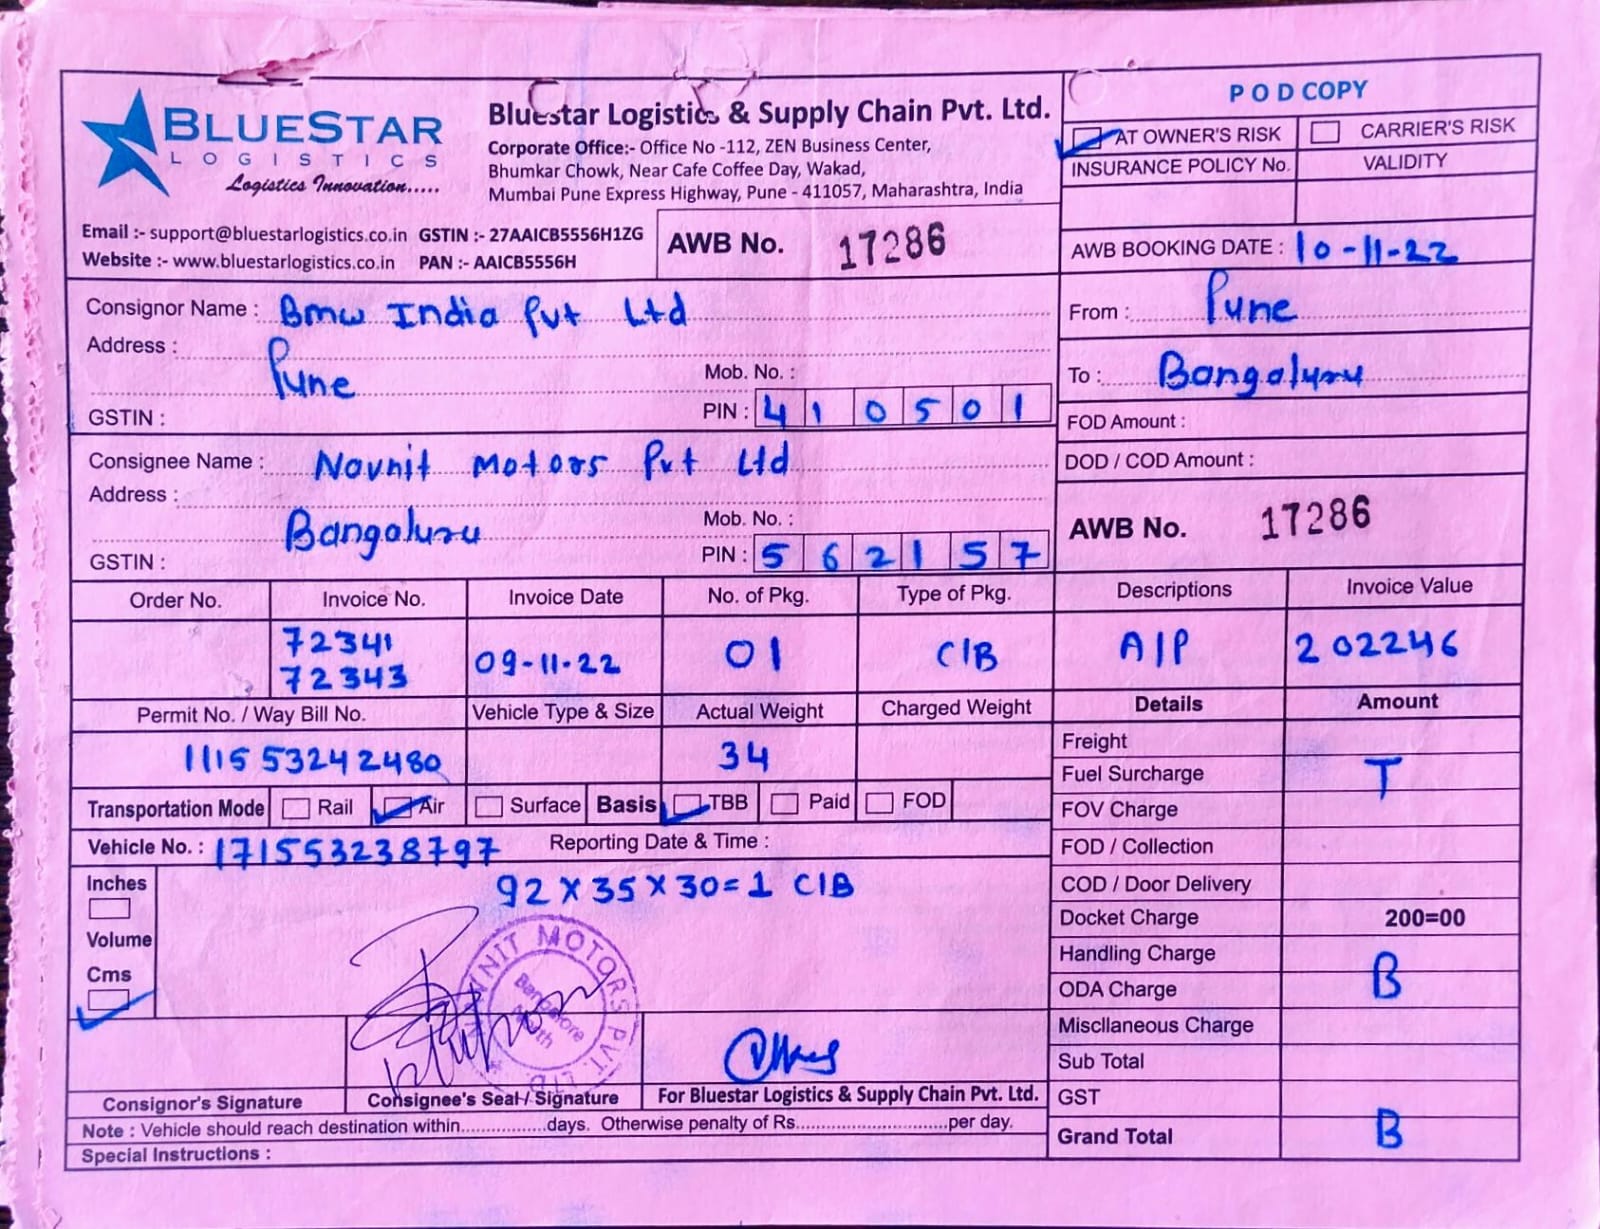 BLUESTAR
LOGISTICS
Logistics Innovation.....
Bluestar Logistics & Supply Chain Pvt. Ltd.
Corporate Office:- Office No -112, ZEN Business Center,
Bhumkar Chowk, Near Cafe Coffee Day, Wakad,
Mumbai Pune Express Highway, Pune - 411057, Maharashtra, India
Email :- support@bluestarlogistics.co.in GSTIN :- 27AAICB5556H1ZG
Website :- www.bluestarlogistics.co.in PAN :- AAICB5556H
AWB No. 17286
POD COPY
AT OWNER'S RISK CARRIER'S RISK
INSURANCE POLICY No. VALIDITY
AWB BOOKING DATE : 10-11-22
From : Pune
To : Bangaluru
FOD Amount :
DOD / COD Amount :
AWB No. 17286
Consignor Name : Bmw India Pvt Ltd
Address :
Pune
Mob. No. :
GSTIN : PIN : 410501
Consignee Name : Navnit Motors Pvt Ltd
Address :
Bangaluru
Mob. No. :
GSTIN : PIN : 562157
Order No. Invoice No. Invoice Date No. of Pkg. Type of Pkg. Descriptions Invoice Value
72341
72343 09-11-22 01 C/B A/P 202246
Permit No. / Way Bill No. Vehicle Type & Size Actual Weight Charged Weight
111553242480 34
Transportation Mode Rail Air Surface Basis TBB Paid FOD
Vehicle No. : 171553238797 Reporting Date & Time :
Inches
Volume
Cms
92 X 35 X 30 = 1 C/B
NAVNIT MOTORS PVT. LTD.
Bangalore
North
Consignor's Signature Consignee's Seal / Signature For Bluestar Logistics & Supply Chain Pvt. Ltd.
Note : Vehicle should reach destination within.................days. Otherwise penalty of Rs..............................per day.
Special Instructions :
Details Amount
Freight
Fuel Surcharge T
FOV Charge
FOD / Collection
COD / Door Delivery
Docket Charge 200=00
Handling Charge
ODA Charge B
Miscllaneous Charge
Sub Total
GST
Grand Total B